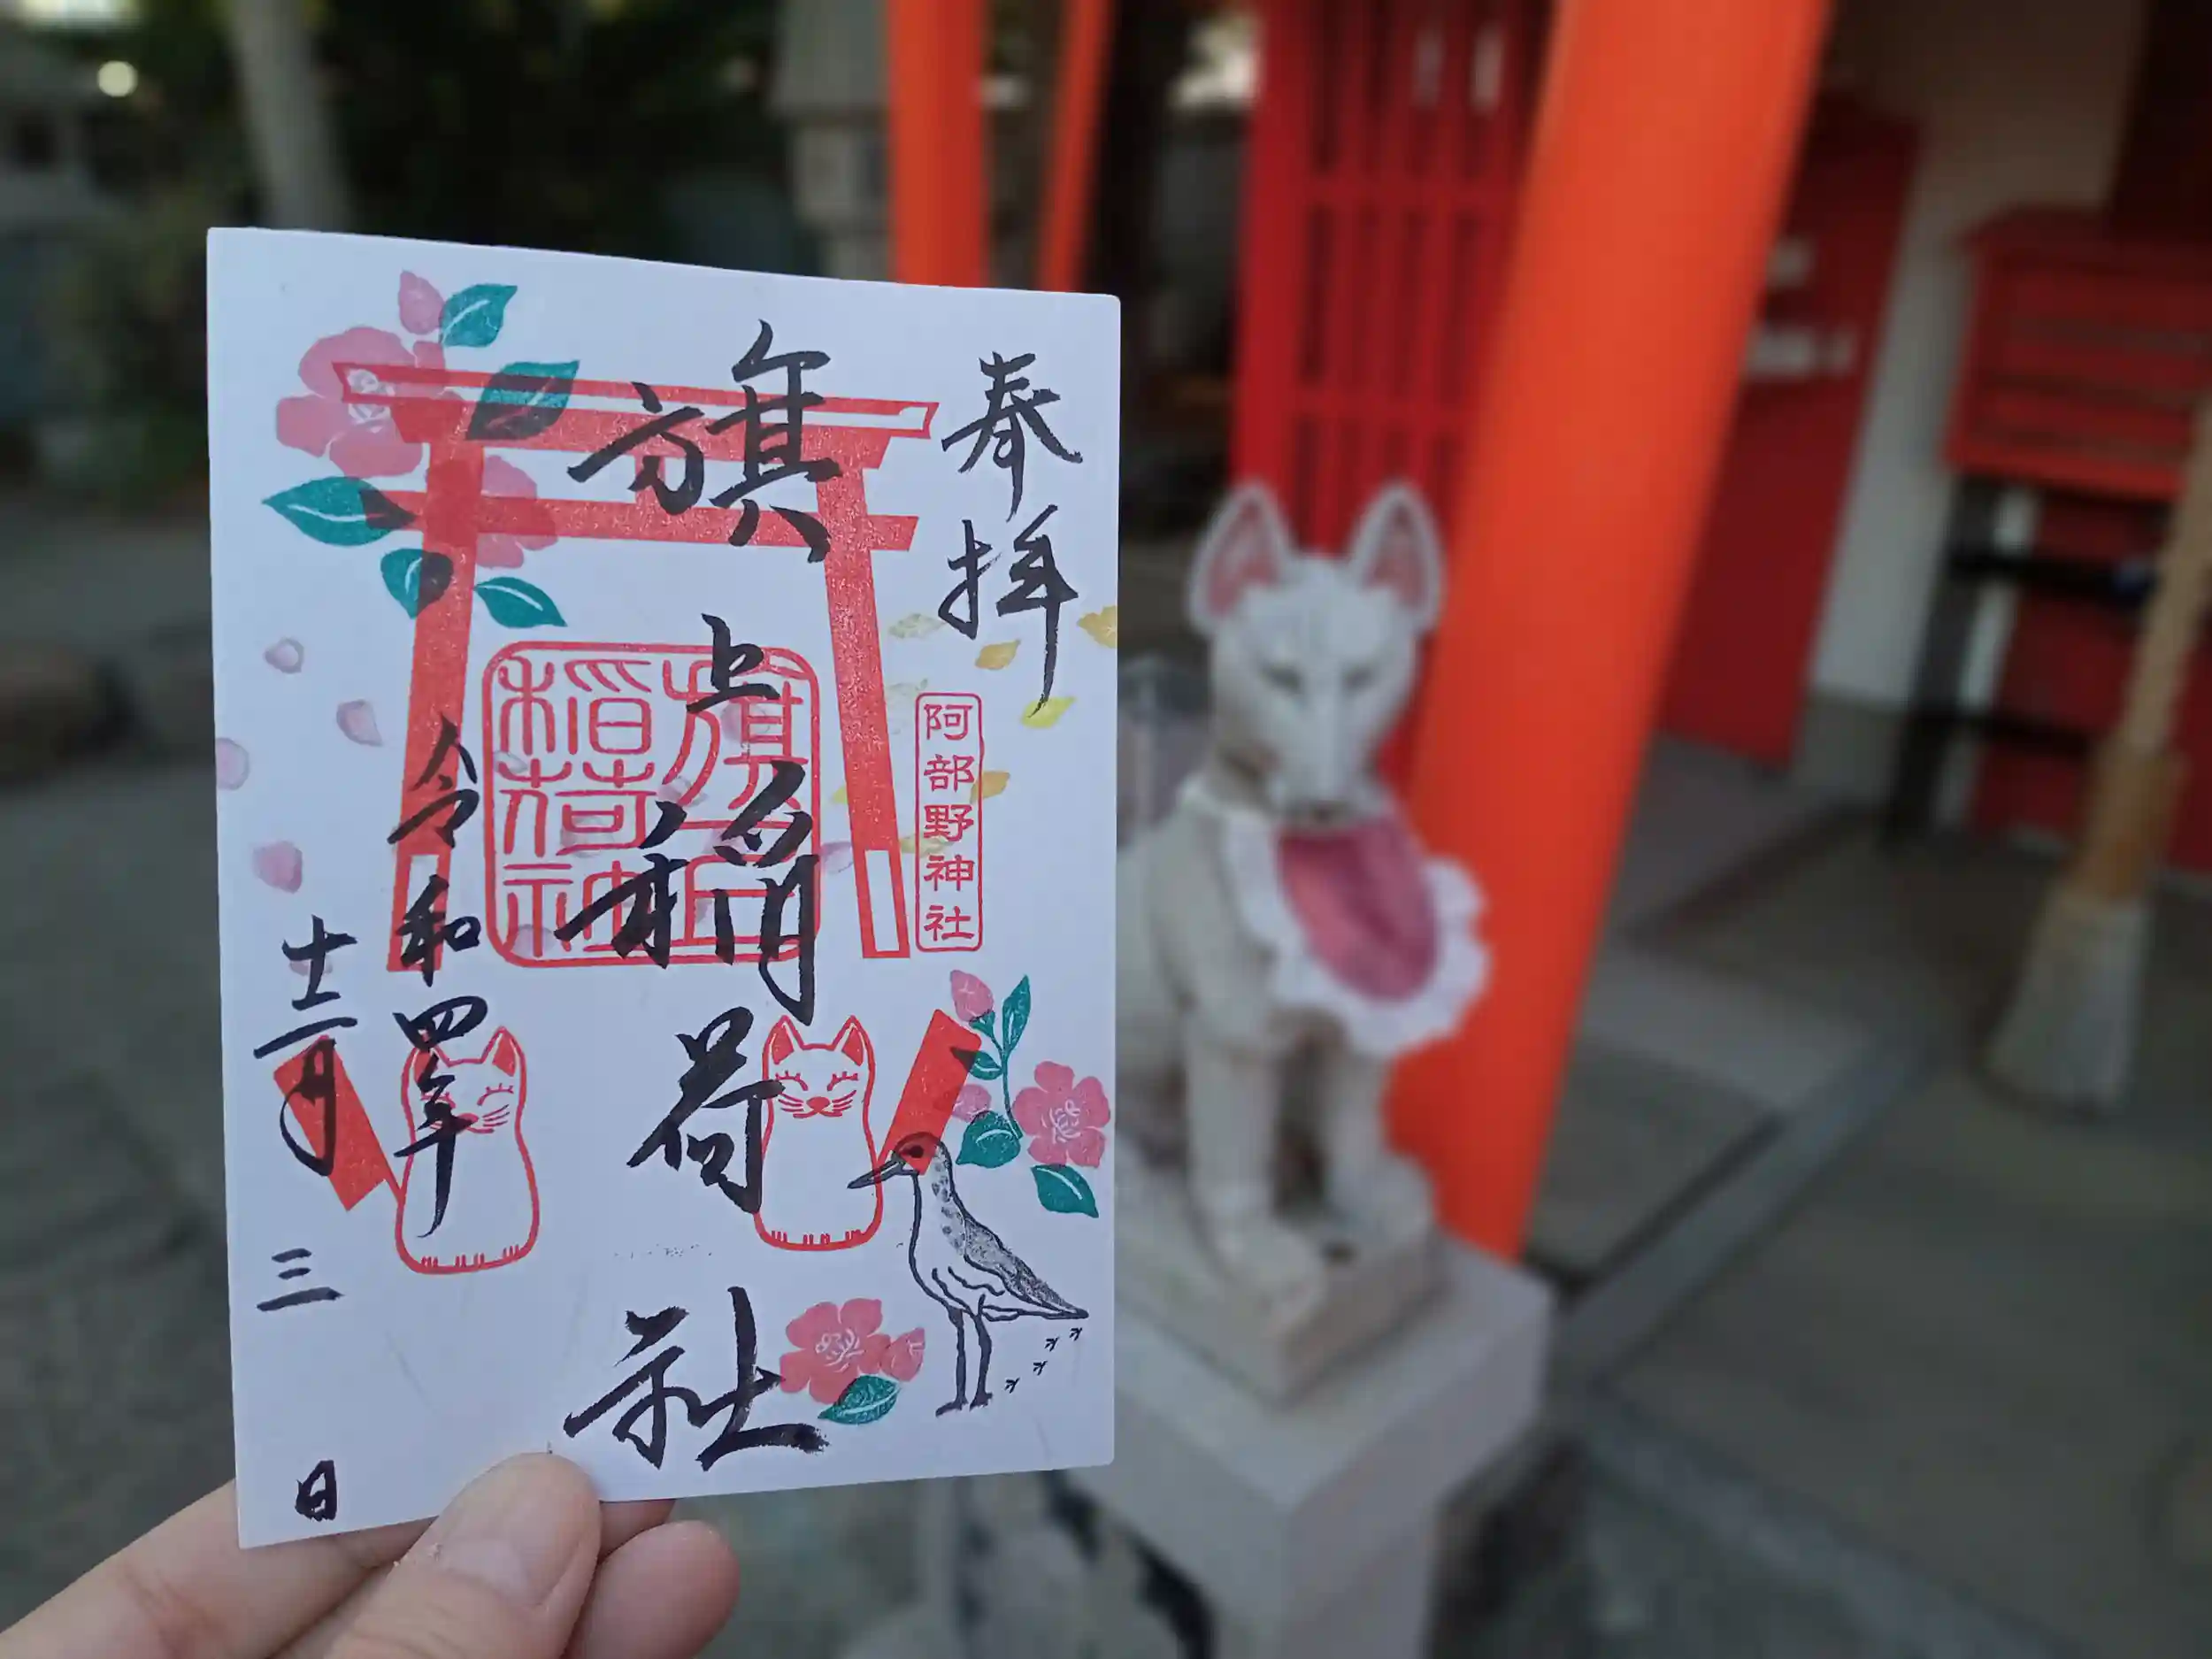 奉拝
阿部野神社
旗上稲荷社
旗上稲荷神社
令和四年
十二月三日